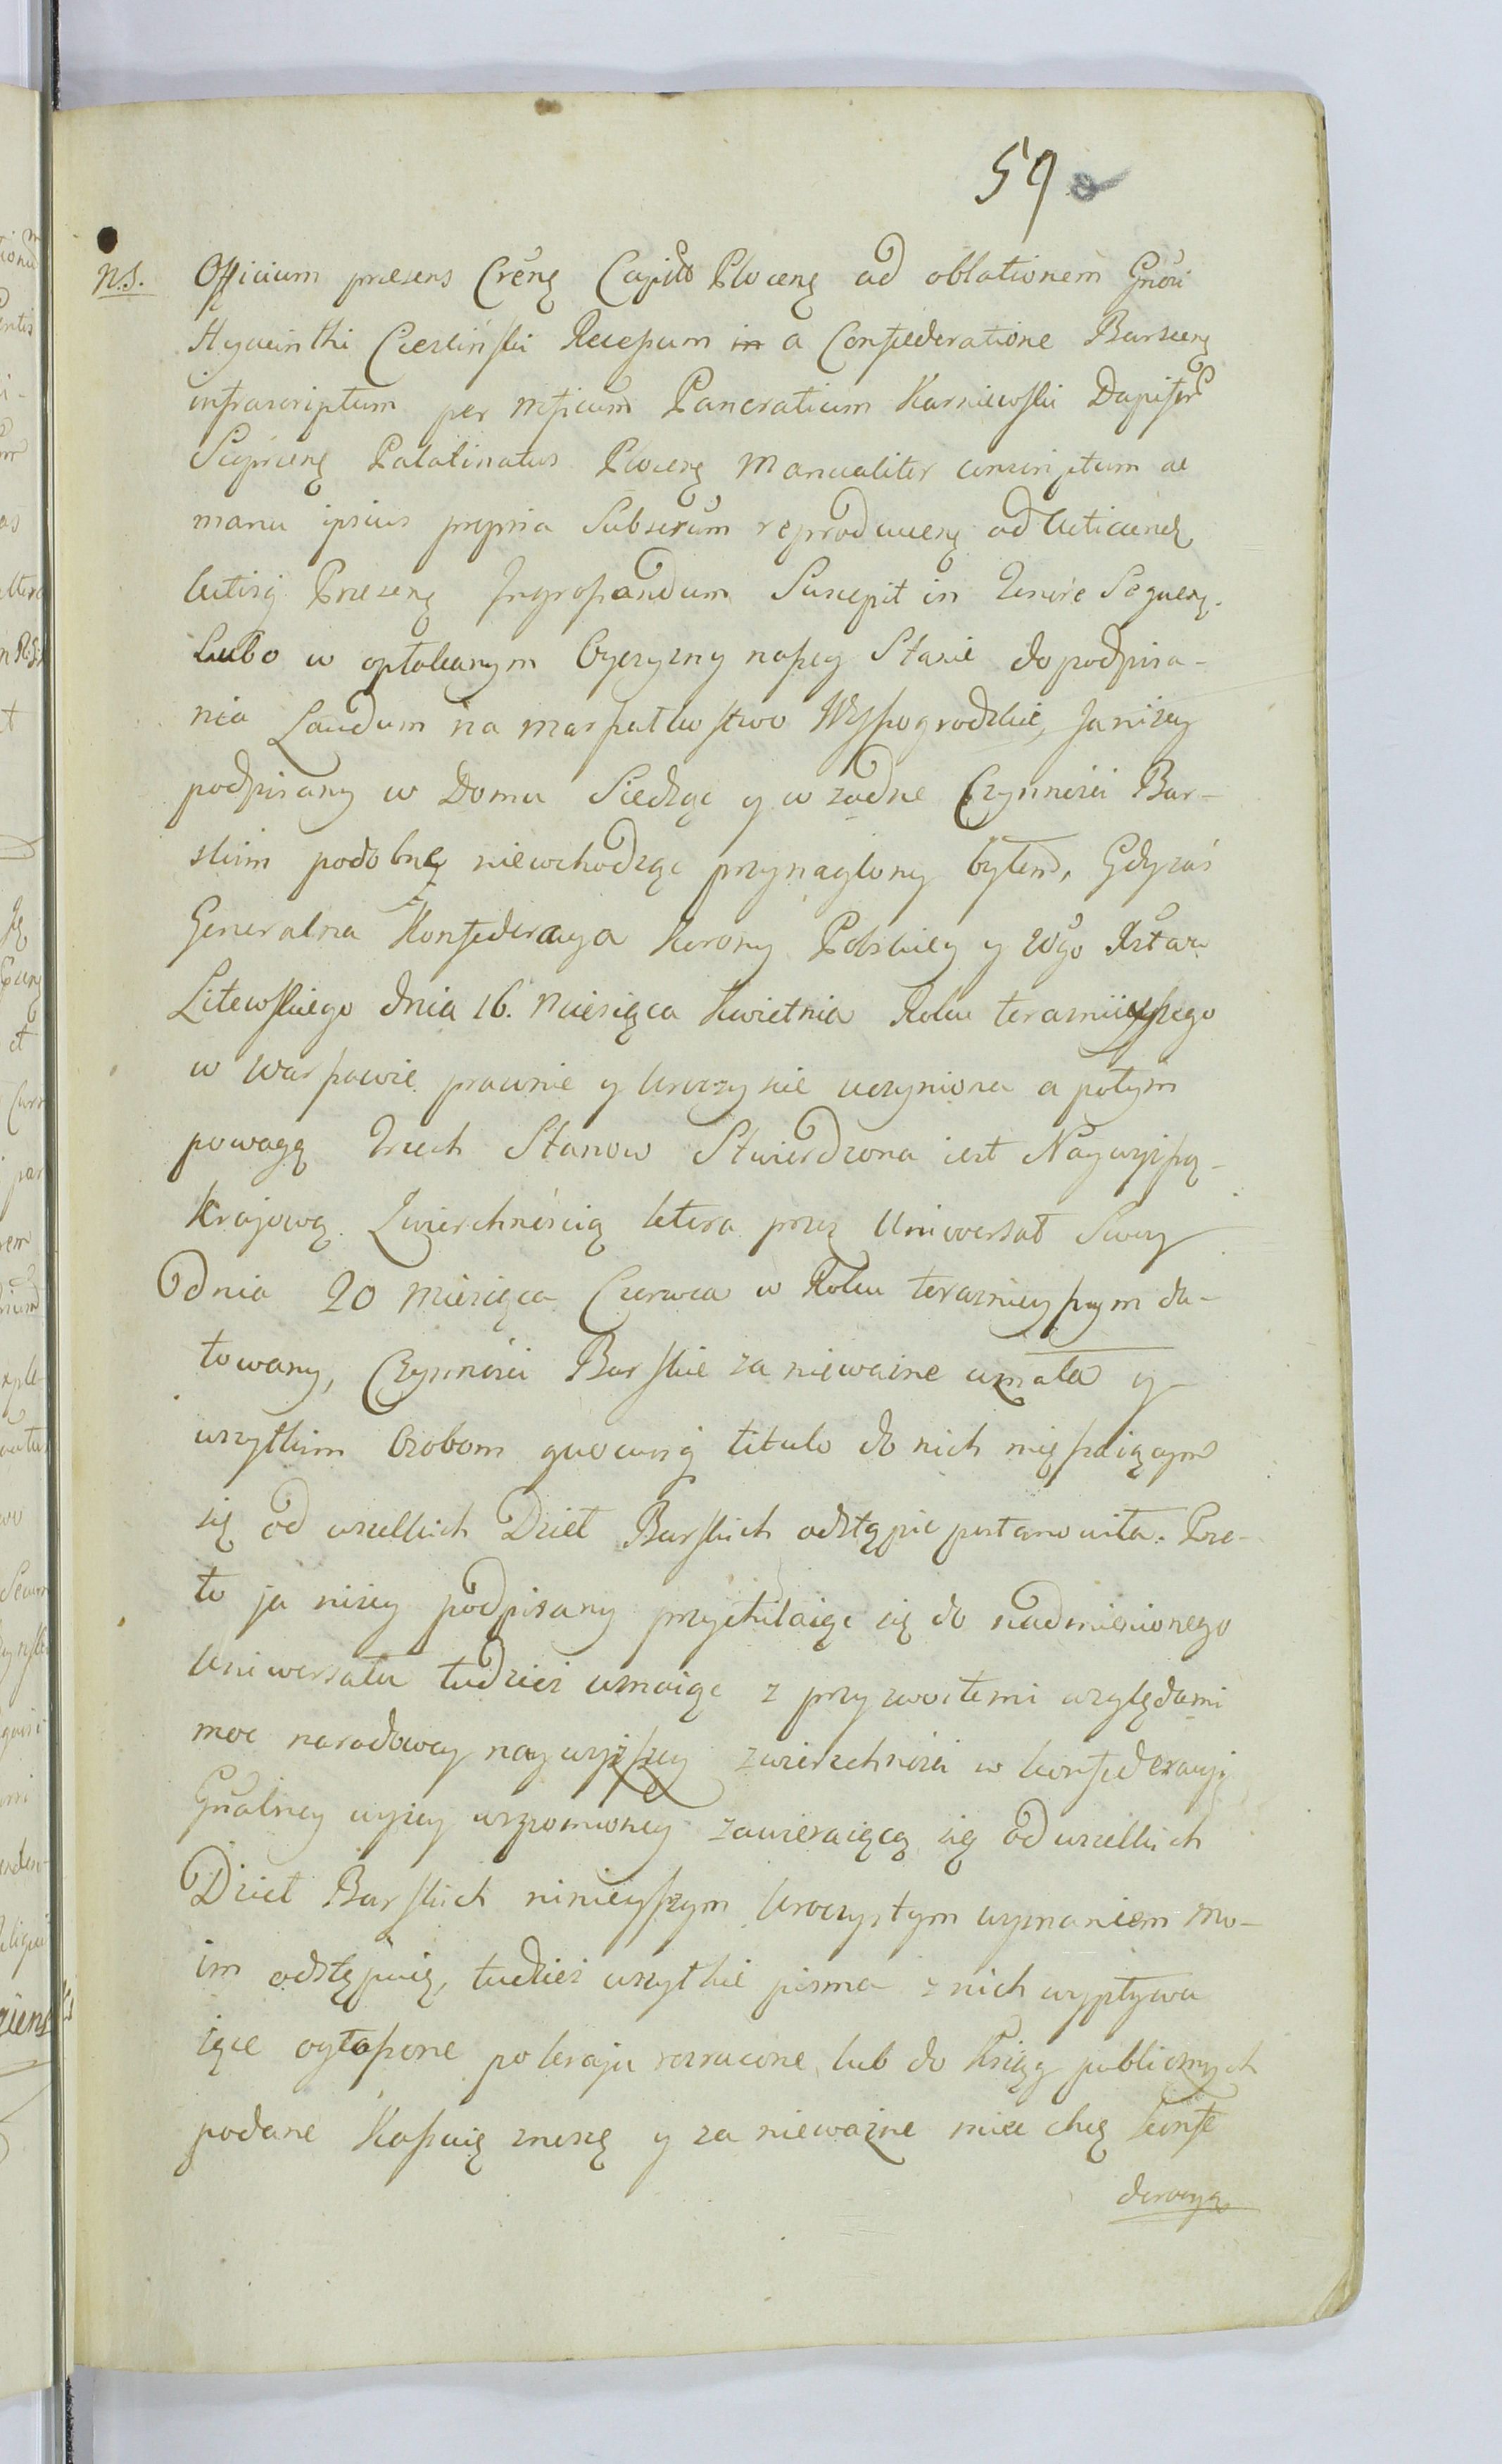 59
N.S. Officium praesens Crēng Capitō Ploceng ad oblationem Gnōri
Hyacinthi Ciesliński Recessum in a Confederatione Barsceng
infrascriptum per Mficum Pancratium Karniewski Dapifer
Sieprceng Palatinatus Ploceng Manualiter conscriptum ac
manu ipsius propria Subscrūm reproduceng ad Acticand
Actisq Praeseng Ingrossandum Suscepit in Tenōre Sequeng.
Lubo w opłakanym Oyczyzny naszey Stanie do podpisa-
nia Laudum na marszałkostwo Wyszogrodzkie, Ja niżey
podpisany w Domu Siedząc y w żadne Czynności Bar-
skim podobnę niewchodząc przynaglony byłem, Gdy zaś
Generalna Konfederacya Korony Polskiey y Wgō Xstwa
Litewskiego dnia 16. Miesiąca Kwietnia Roku teraznieyszego
w Warszawie prawnie y Uroczyscie uczyniona a potym
powagą Trzech Stanow Stwierdzona iest Naywyższą-
Krajową Zwierchnością ktora przez Uniwersał Swoy
Odnia 20 Miesiąca Czerwca w Roku teraznieyszym da-
towany, Czynności Barskie za nieważne uznała y-
wszytkim Osobom quocunq titulo do nich mięszaiącym
się od wszelkich Dzieł Barskich odstąpic postanowiła. Prze-
to ja niżey podpisany przychilaiąc się do nadmienionego
Uniwersału tudzież uznaiąc z przyzwoitemi względami
moc narodowey naywyższey zwierzchności w konfederacyi
Gnralney wyżey wspomnioney zawieraiącą się od wszelkich
Dzieł Barskich ninieyszym Uroczystym wyznaniem mo-
im odstępuię, tudzież wszytkie pisma z nich wypływa
iące ogłaszone po kraju rozrucone lub do Xsiąg publicznych
podane Kassuię znoszę y za nieważne miec chcę konfe
deracyą